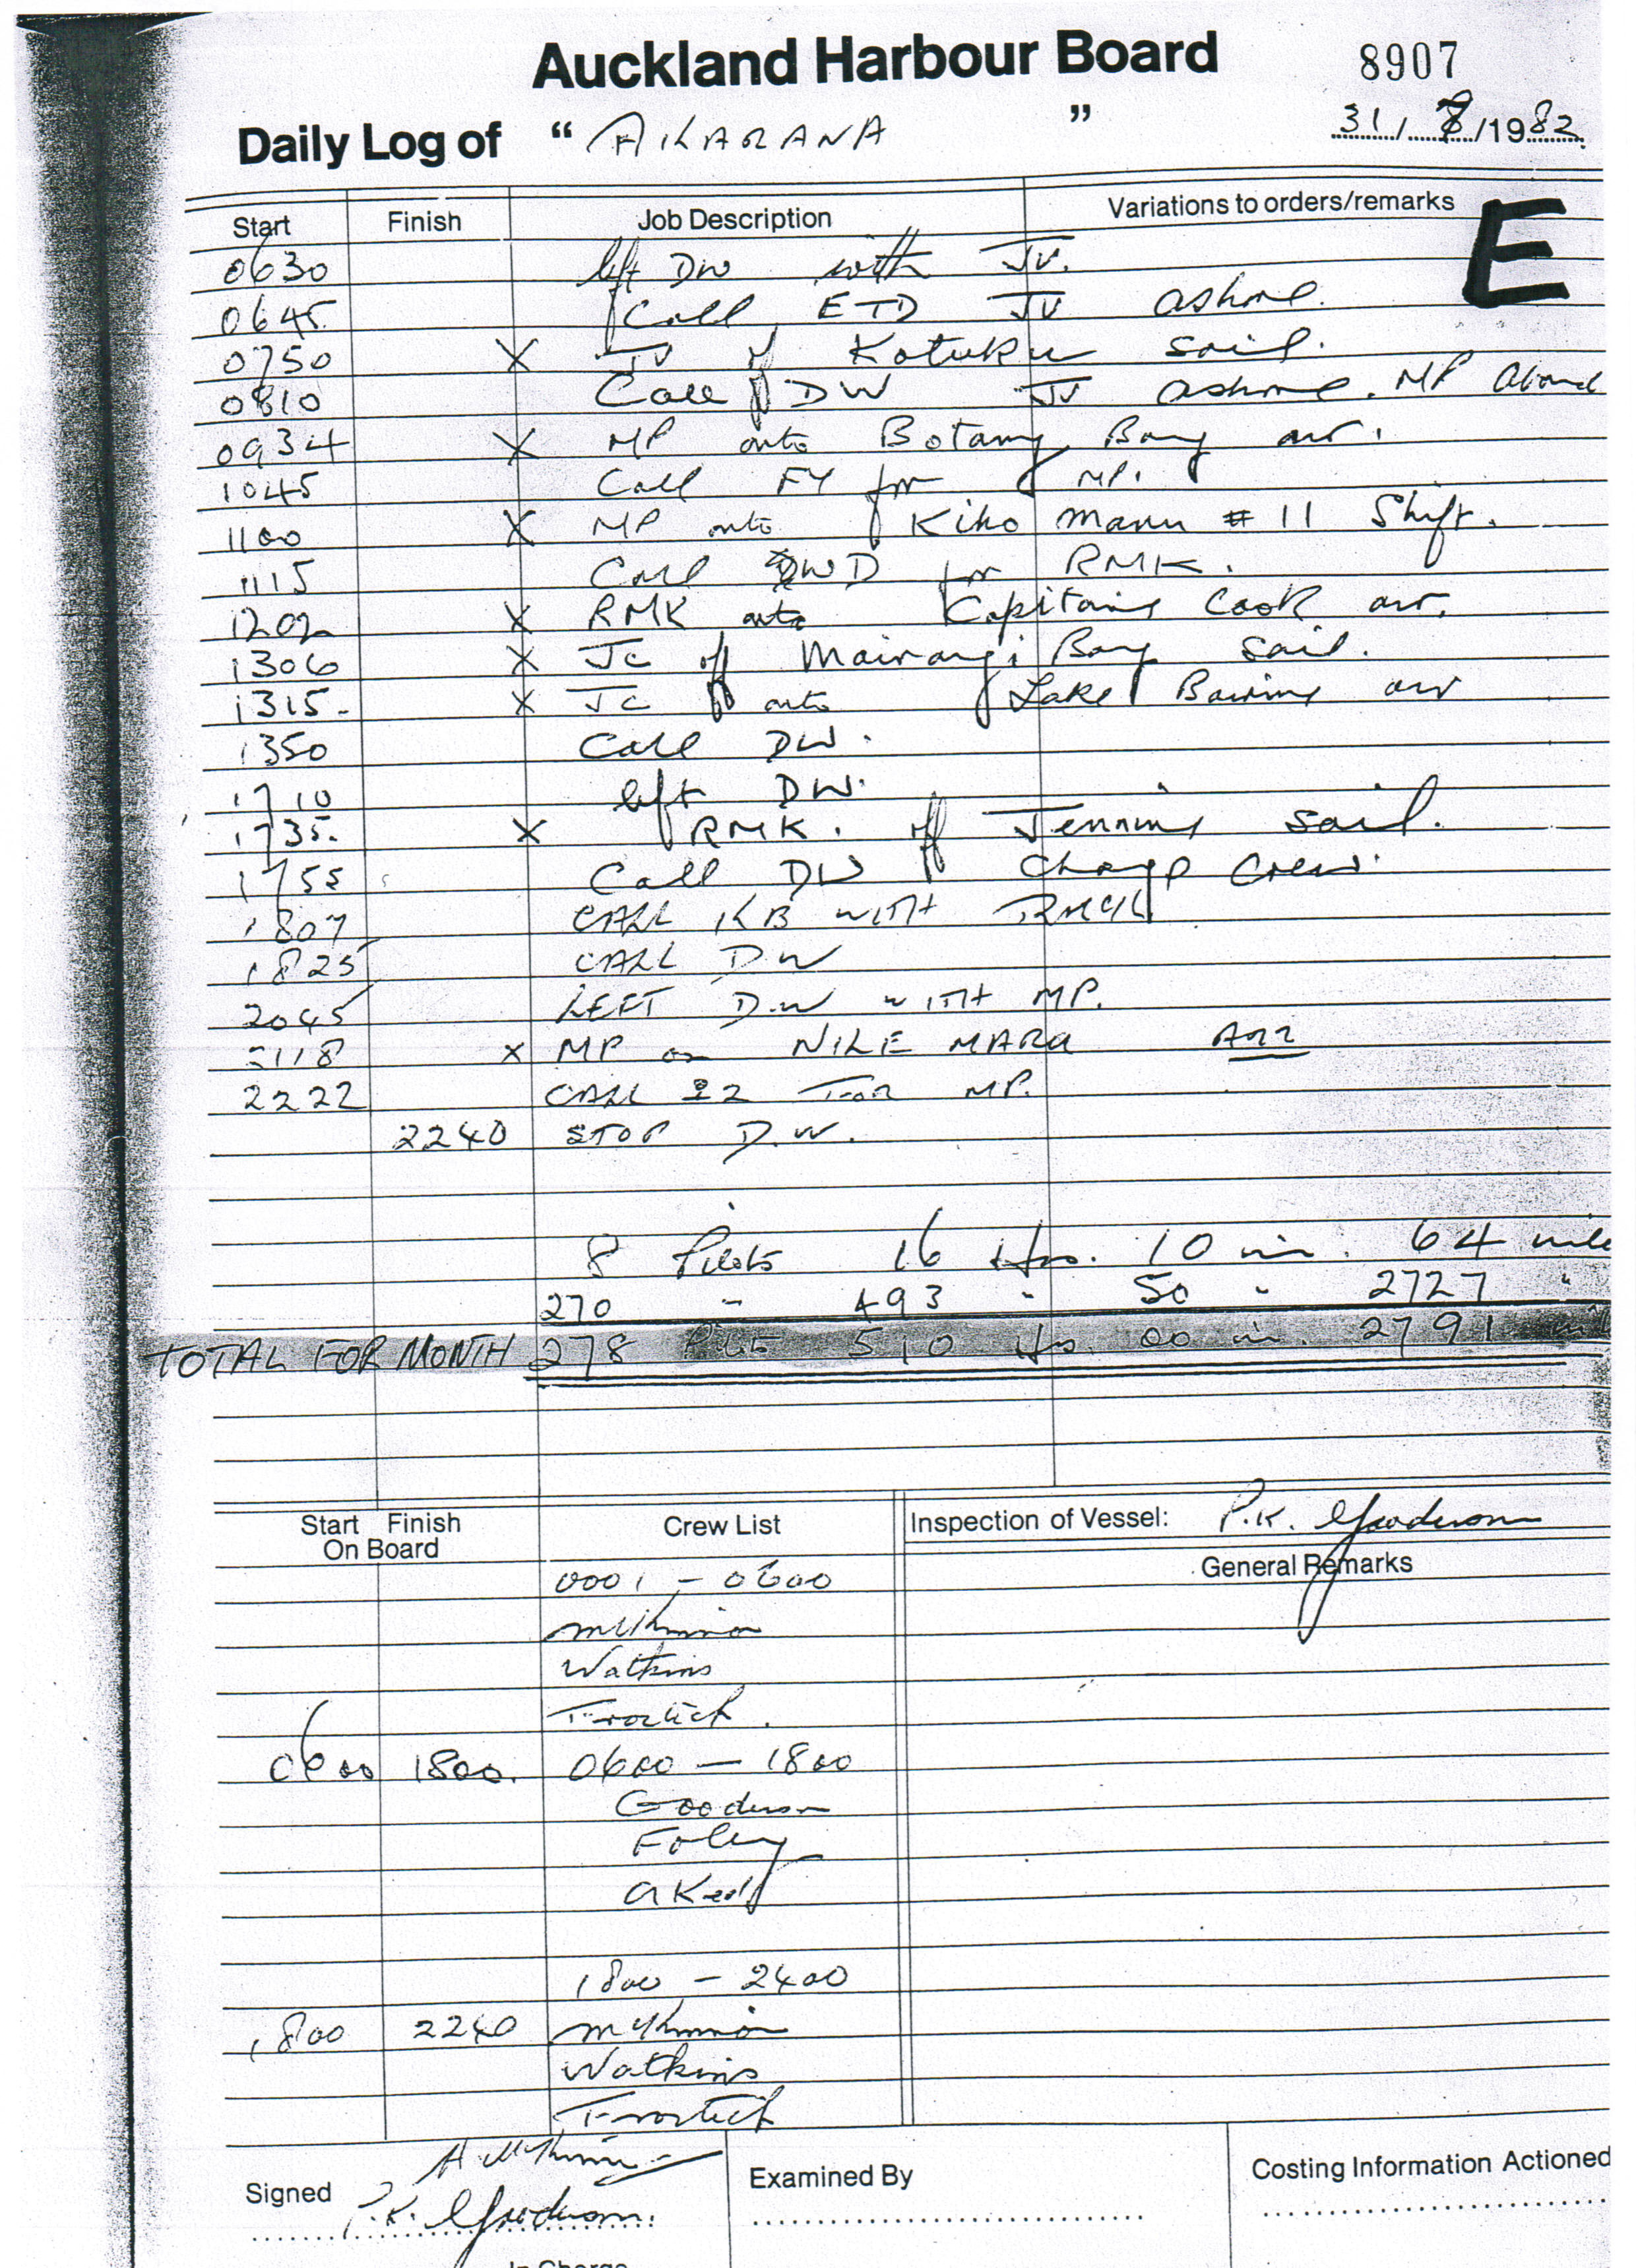 Auckland Harbour Board 8907
Daily Log of " AKARANA " 31/8/1982
Start Finish Job Description Variations to orders/remarks
E
0630 left DW with JV.
0645 Call ETD JV ashore.
0750 X JV off Kotuku sail.
0810 Call DW JV ashore. MP aboard
0934 X MP onto Botany Bay arr.
1045 Call FY for MP.
1100 X MP onto Kiho Maru # 11 Shift.
1115 Call WD for RMK.
1202 X RMK onto Capitaine Cook arr.
1306 X JC off Mairangi Bay sail.
1315. X JC onto Lake arr
1350 Call DW.
1710 left DW.
1735. X RMK. off sail.
1755 Call DW Change Crew.
1807 CALL KB WITH
1825 CALL DW
2045 LEFT D.W WITH MP.
2118 X MP on NILE MARU ARR
2222 CALL FOR MP.
2240 STOP D.W.
8 Pilots 16 Hrs. 10 min. 64 mile
270 " 493 " 50 " 2727 "
TOTAL FOR MONTH 278 510 Hrs. 00 m. 2791
Start Finish Crew List Inspection of Vessel: P.K. Gooderson
On Board General Remarks
0001 - 0600
McKinnon
Watkins
Frostick.
0600 1800. 0600 - 1800
Gooderson
Foley
1800 - 2400
1800 2240 McKinnon
Watkins
Frostick
Signed P.K. Gooderson. Examined By Costing Information Actioned
In Charge